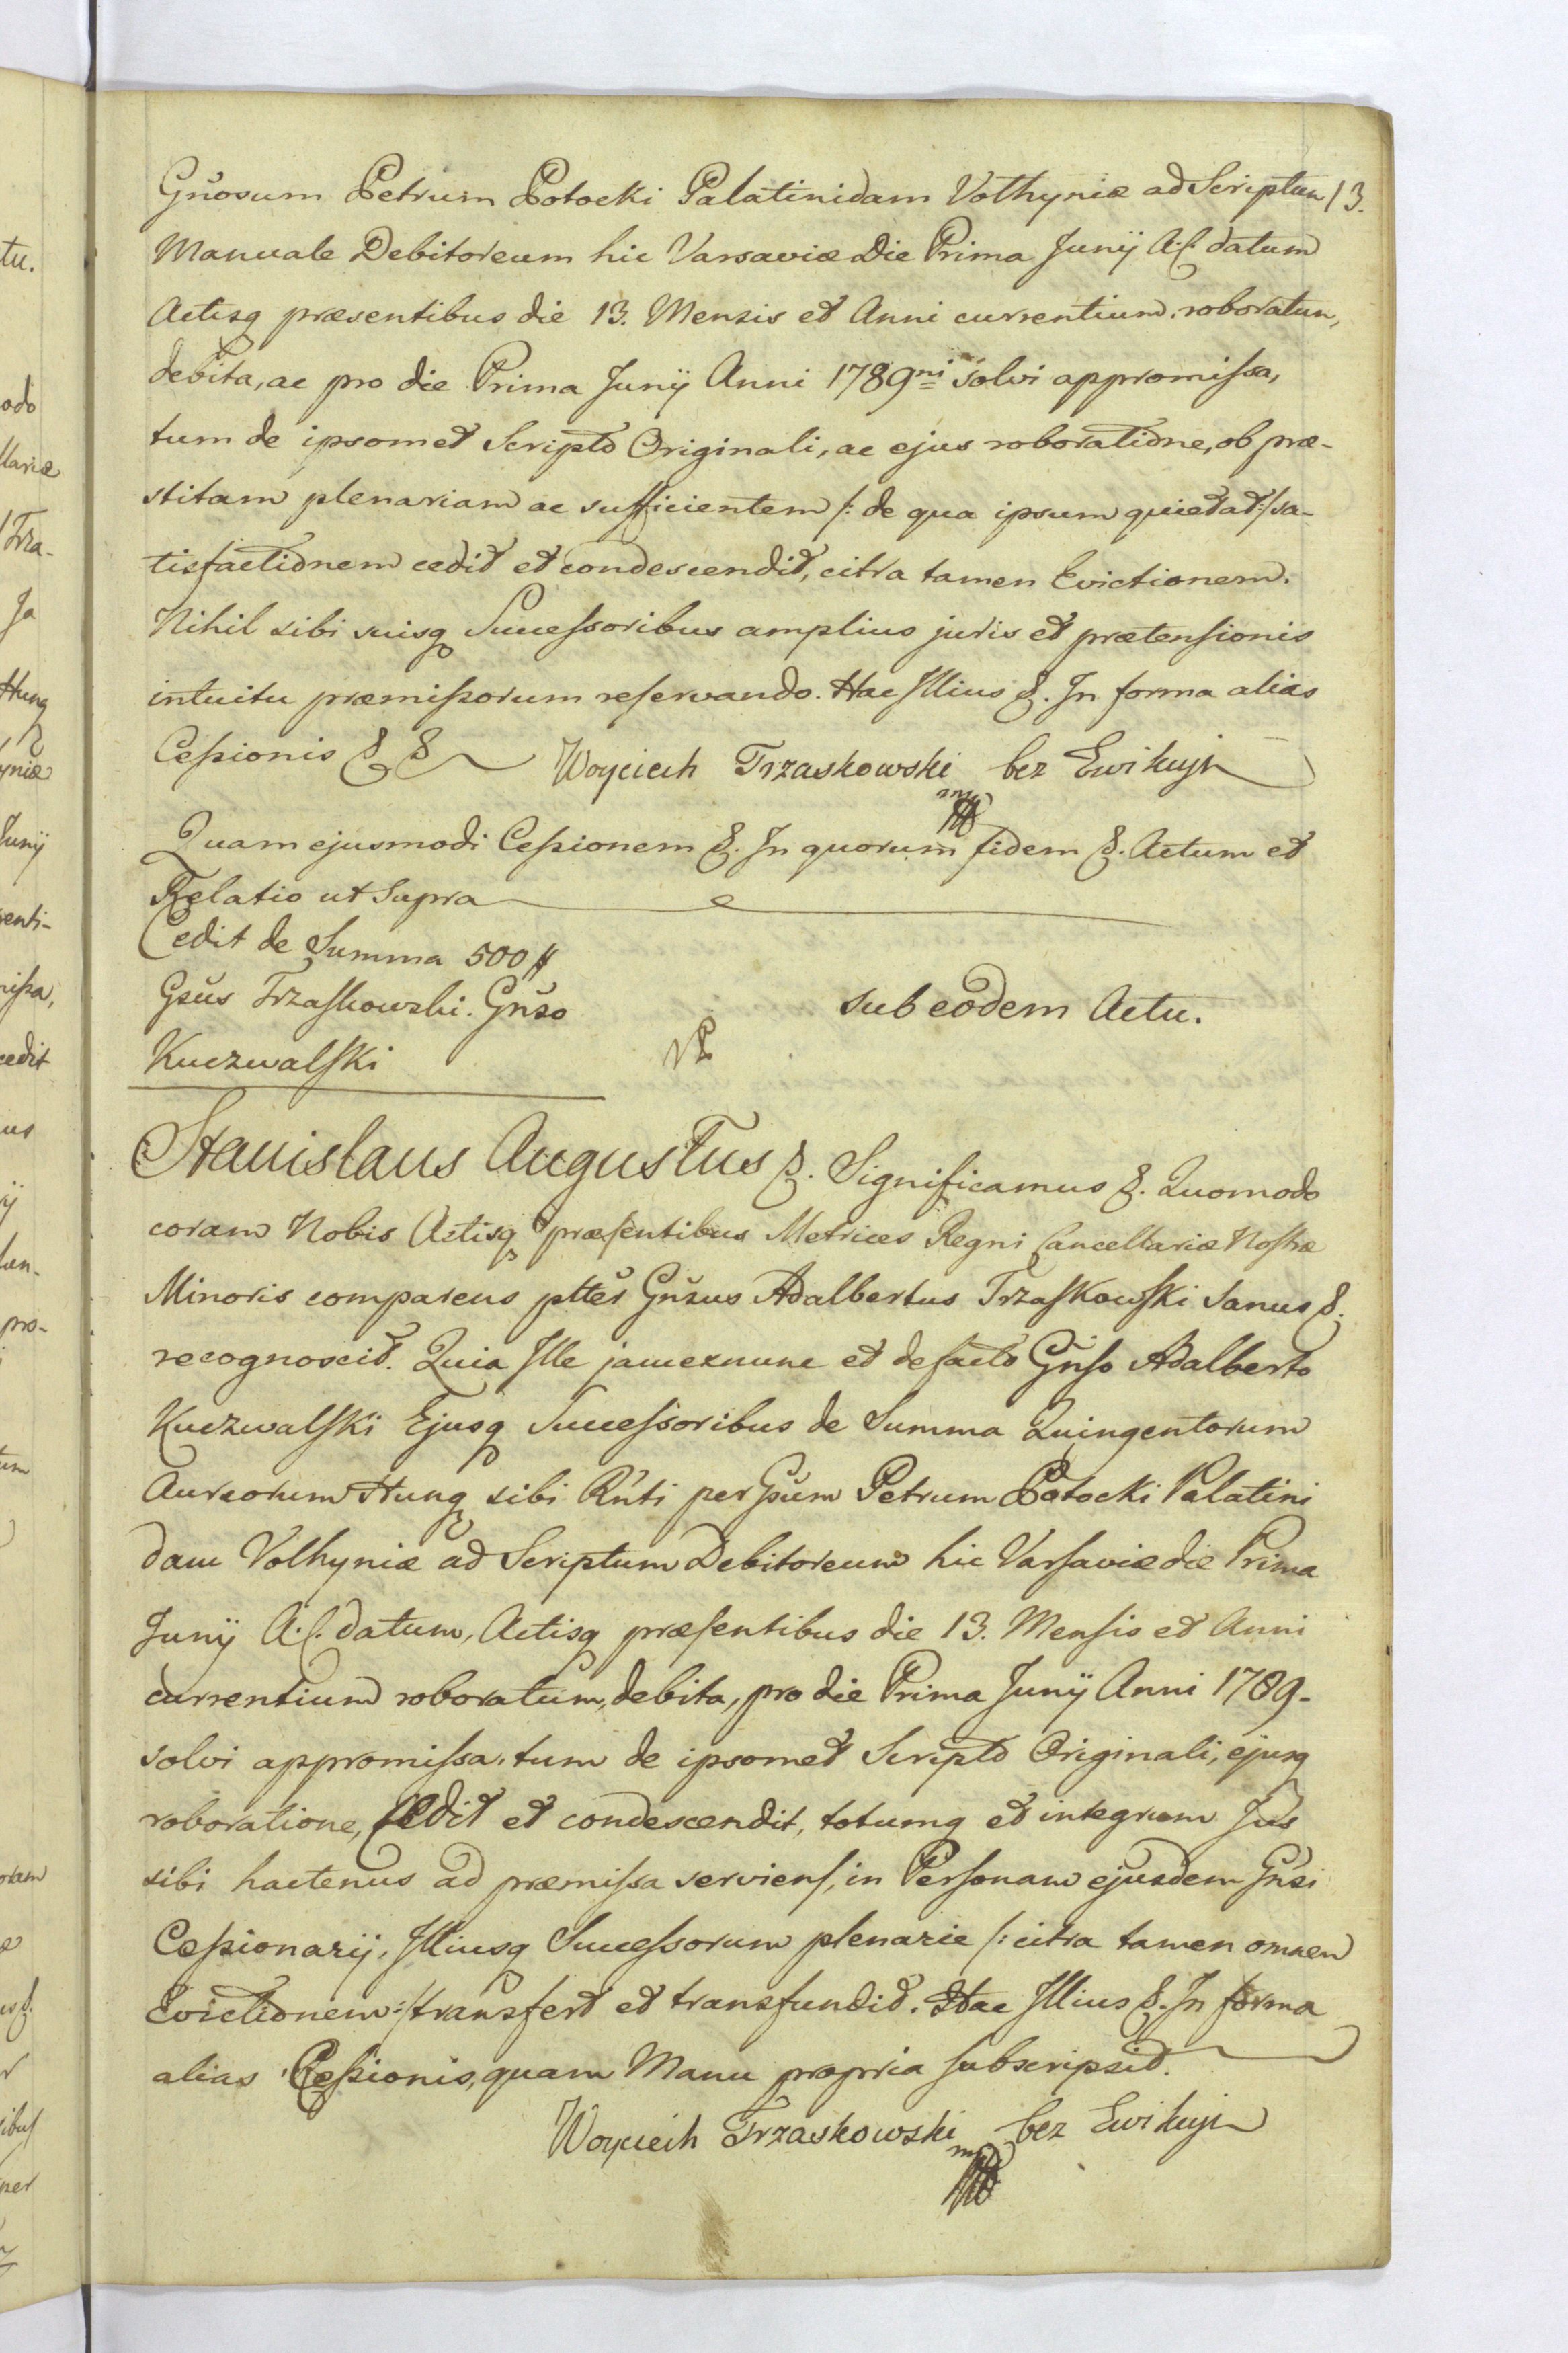 Gnosum Petrum Potocki Palatinidam Volhyniæ ad Scriptum 13.
Manuale Debitoreum hic Varsaviæ Die Prima Junÿ A. C. datum
Actisq præsentibus die 13. Mensis et Anni currentium roboratum,
debita, ac pro die Prima Junÿ Anni 1789ni solvi appromissa,
tum de ipsomet Scripto Originali, ac ejus roboratione, ob præ-
stitam plenariam ac sufficientem /: de qua ipsum quietat :/ sa-
tisfactionem cedit et condescendit, citra tamen Evictionem.
Nihil sibi suisq Successoribus amplius juris et prætensionis
intuitu præmissorum reservando. Hac Illius &. In forma alias
Cessionis & & Woyciech Trzaskowski bez Ewikcyi
mp
Quam ejusmodi Cessionem &. In quorum fidem &. Actum et
Relatio ut Supra
Cedit de Summa 500 #
Gsus Trzaskowski. Gnso
sub eodem Actu.
Kuczwalski
Stanislaus Augustus &. Significamus &. Quomodo
coram Nobis Actisq præsentibus Metrices Regni Cancellariæ Nostræ
Minoris comparens ptter Gnsus Adalbertus Trzaskowski Sanus &.
recognoscit. Quia Ille jamexnunc et defacto Gnso Adalberto
Kuczwalski Ejusq Successoribus de Summa Quingentorum
Aureorum Hung sibi Rnti per Gsum Petrum Potocki Palatini
dam Volhyniæ ad Scriptum Debitoreum hic Varsaviæ die Prima
Junÿ A. C. datum, Actisq præsentibus die 13. Mensis et Anni
currentium roboratum, debita, pro die Prima Junÿ Anni 1789.
solvi appromissa, tum de ipsomet Scripto Originali, ejusq
roboratione, Cedit et condescendit, totumq et integrum Jus
sibi hactenus ad præmissa serviens, in Personam ejusdem Gnsi
Cessionarÿ, Illiusq Successorum plenarie /: citra tamen omnem
Evictionem :/ transfert et transfundit. Hac Illius &. In forma
alias Cessionis, quam Manu propria subscripsit.
Woyciech Trzaskowski bez Ewikcyi
mp